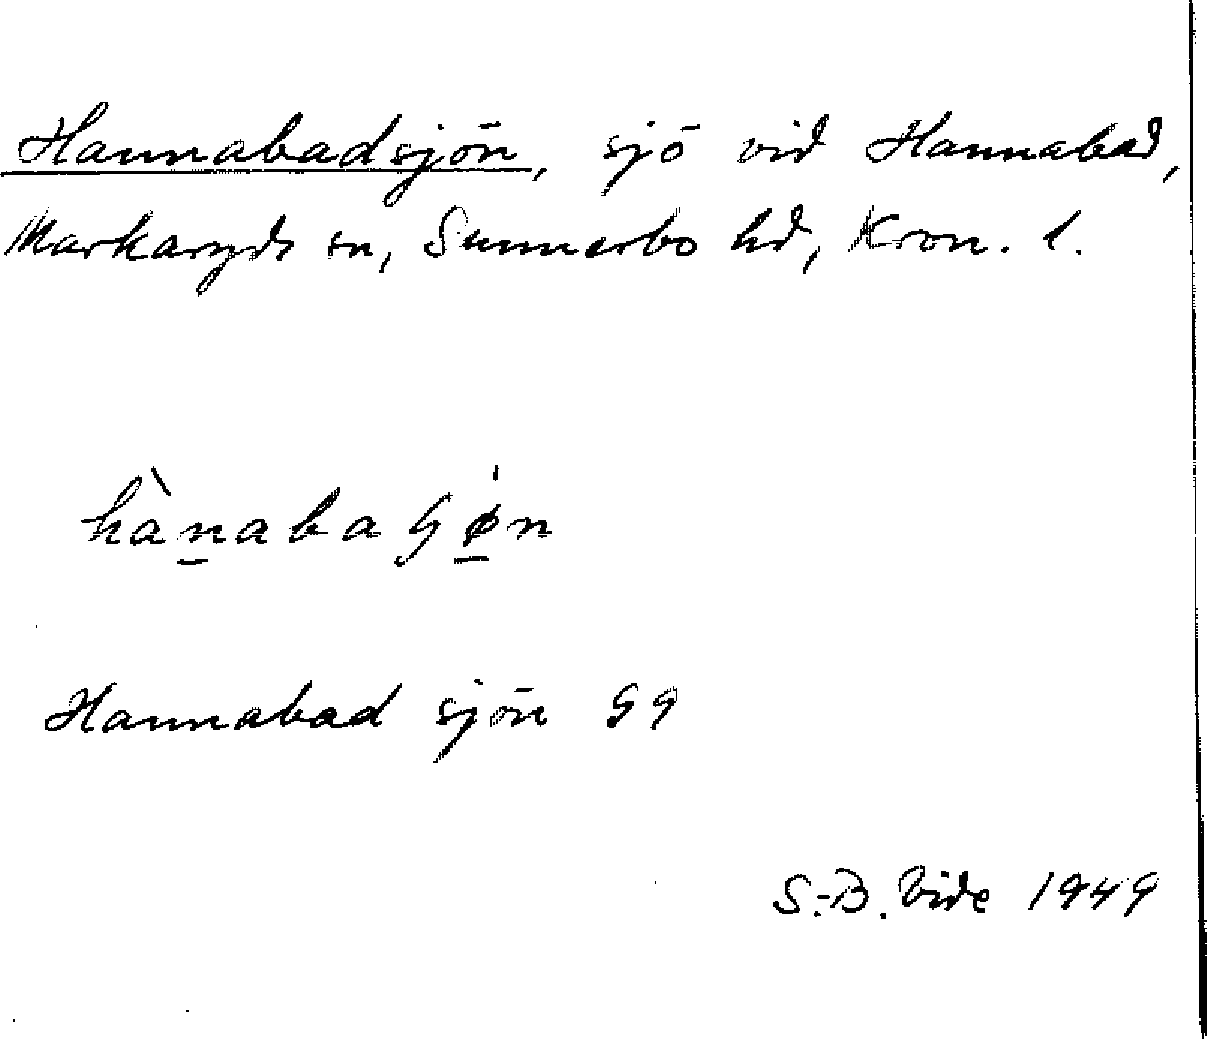 Hannabadsjön, sjö vid Hannabad,
Markaryds sn, Sunnerbo hd, Kron. l.
hànabaɢø̀n
Hannabad sjön G9
S.-B. Vide 1949